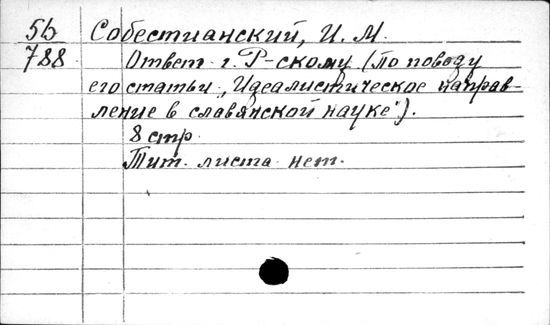 5b Собестианский, И. М.
788 Ответ г. Р-скому (По поводу
его статьи „Идеалистическое направ-
ление в славянской науке").
8 стр.
Тит. листа нет.